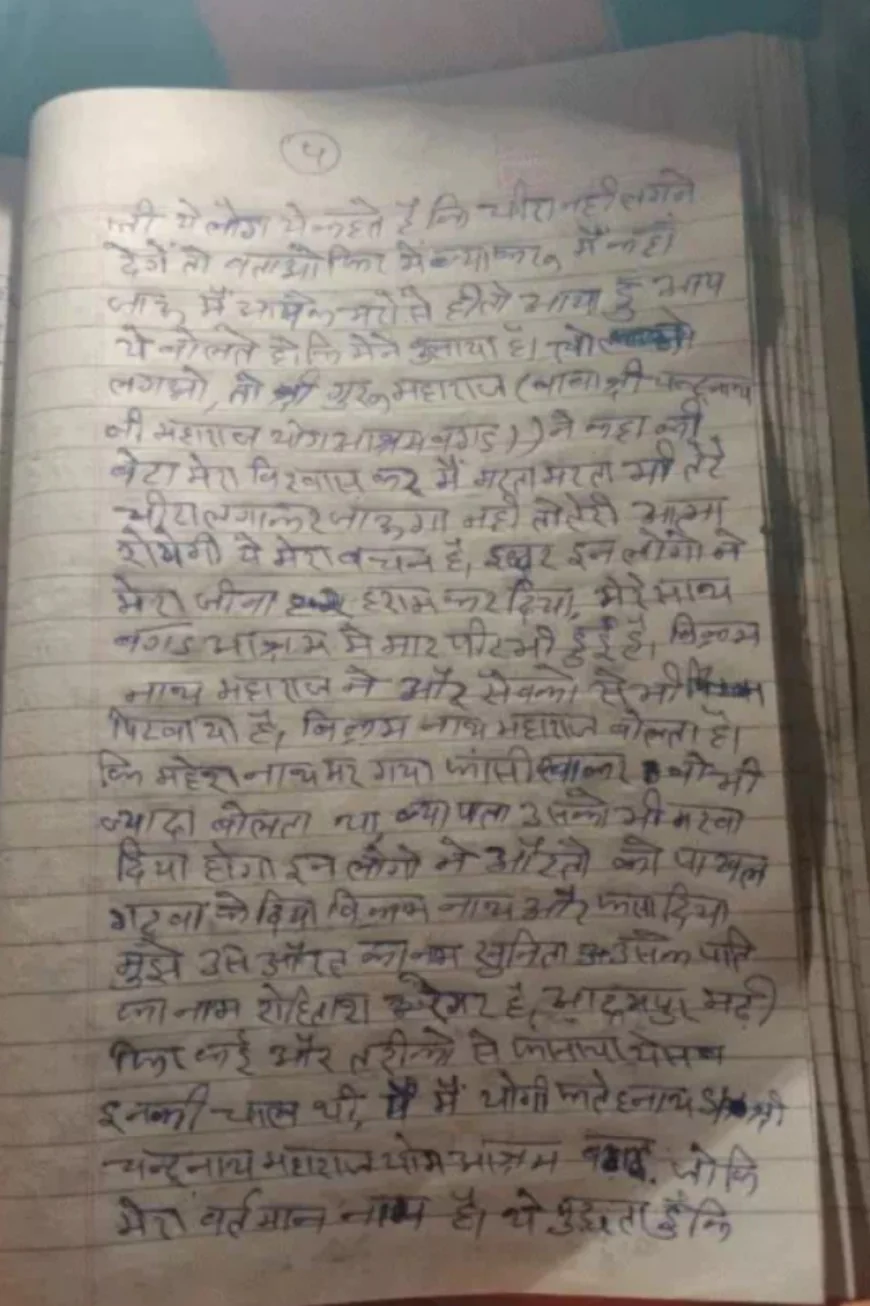 ५
ली ये लोग ये कहते है कि चीरा नही लगने
देगें तो बताओ फिर मैं क्या करू मैं कहां
जाऊ मैं आपके भरोसे ही तो आया हुं आप
ये बोलते हो कि मेने बुलाया है।
लगाओ, तो श्री गुरू महाराज (बाबा श्री चन्द्रनाथ
जी महाराज योग आश्रम बगड)) ने कहा की
बेटा मेरा विश्वास कर मैं मरता मरता भी तेरे
चीरा लगाकर जाऊगा नही तो तेरी आत्मा
रोयेगी ये मेरा वचन है, इधर इन लोगो ने
मेरा जीना हराम कर दिया, मेरे साथ
बगड आश्रम मे मार पीट भी हुई है, विक्रम
नाथ महाराज ने और सेवको से भी
पिटवाया है, विक्रम नाथ महाराज बोलता है।
कि महेश नाथ मर गया फांसी खाकर वो भी
ज्यादा बोलता था, क्या पता उसको भी मरवा
दिया होगा इन लोगो ने औरतो को पायल
गटवा के दिया विक्रम नाथ और फसा दिया
मुझे उस औरत का नाम सुनिता उसके पति
का नाम रोहिताश है, (आदमपुर मंदी)
फिर कई और तरीको से फसाया ये सब
इनकी चाल थी, मैं योगी फतेहनाथ श्री
चन्द्रनाथ महाराज योग आश्रम बगड. जो कि
मेरा वर्तमान नाम है। ये पुछता हुँ कि